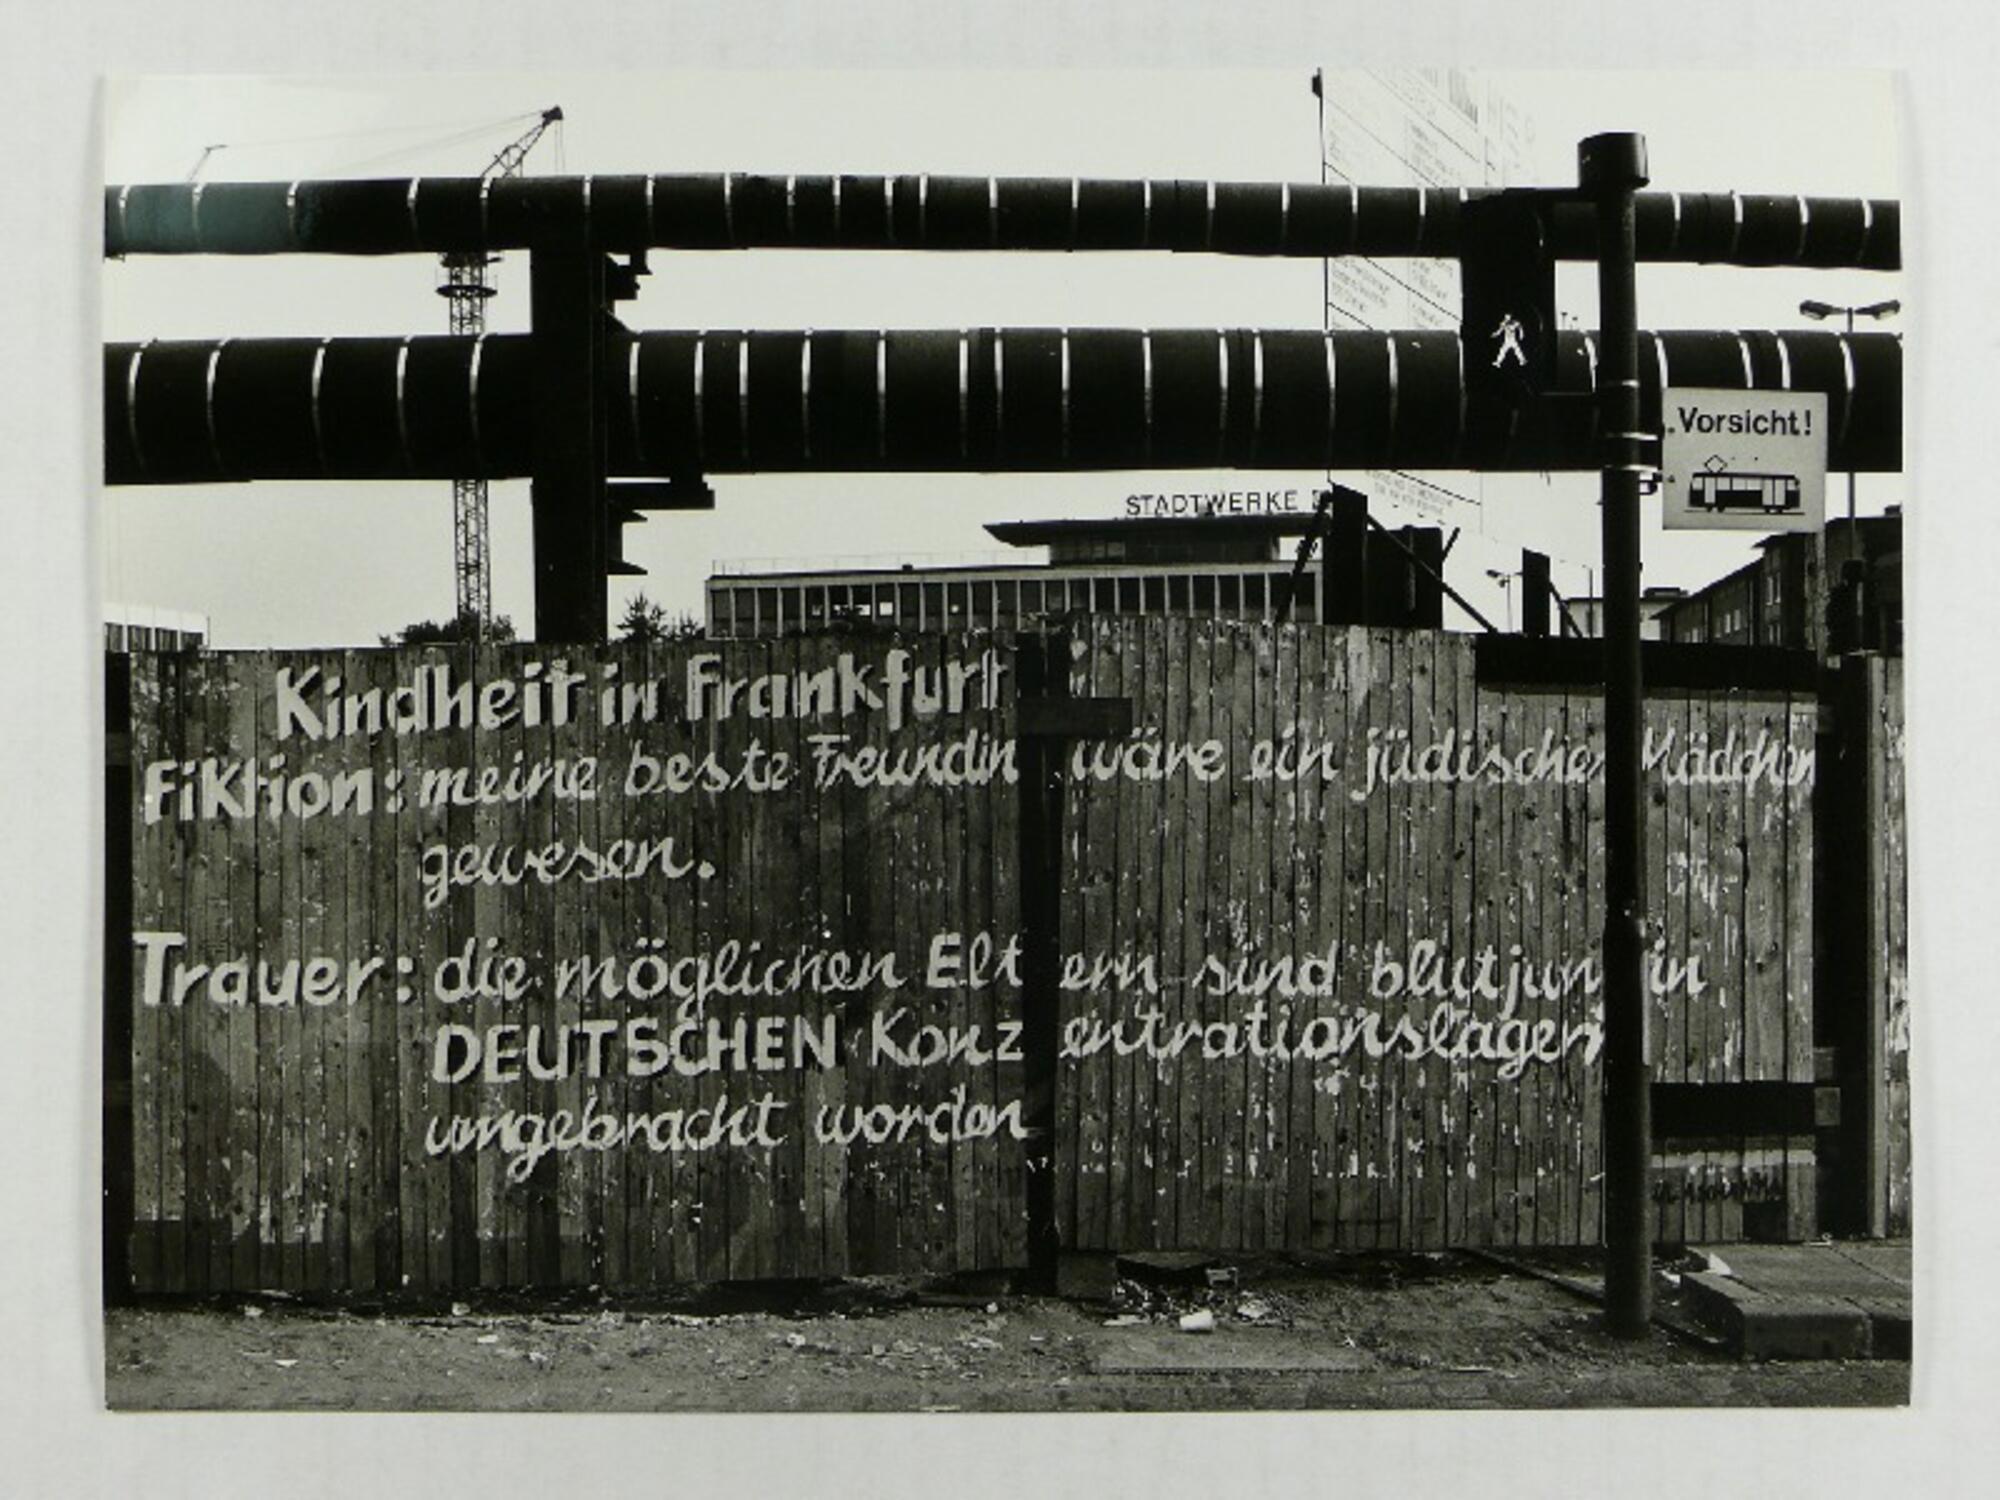 STADTWERKE
Vorsicht!
Kindheit in Frankfurt
Fiktion: meine beste Freundin wäre ein jüdisches Mädchen
gewesen.
Trauer: die möglichen Eltern sind blutjung in
DEUTSCHEN Konzentrationslagern
umgebracht worden